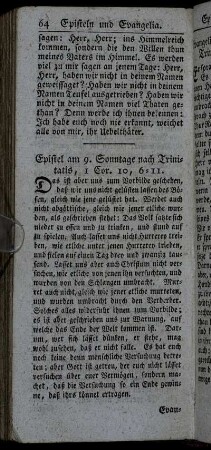 64 Episteln und Evangelia.
sagen: Herr, Herr; ins Himmelreich
kommen, sondern die den Willen thun
meines Vaters im Himmel. Es werden
viel zu mir sagen an jenem Tage: Herr,
Herr, haben wir nicht in deinem Namen
geweissaget? Haben wir nicht in deinem
Namen Teufel ausgetrieben? Haben wir
nicht in deinem Namen viel Thaten ge-
than? Denn werde ich ihnen bekennen:
Ich habe euch noch nie erkannt, weichet
alle von mir, ihr Uebelthäter.
Epistel am 9. Sonntage nach Trini
tatis, 1 Cor. 10, 6-11.
Das ist aber uns zum Vorbilde geschehen,
daß wir uns nicht gelüsten lassen des Bö-
sen, gleich wie jene gelüstet hat. Werdet auch
nicht abgöttische, gleich wie jener etliche wur-
den, als geschrieben stehet: Das Volk satzte sich
nieder zu essen und zu trinken, und stund auf
zu spielen. Auch lasset uns nicht Hurerey trei-
ben, wie etliche unter jenen Hurerey trieben,
und fielen auf einen Tag drey und zwanzig tau-
send. Lasset uns aber auch Christum nicht ver-
suchen, wie etliche von jenen ihn versuchten, und
wurden von den Schlangen umbracht. Mur-
ret auch nicht, gleich wie jener etliche murreten,
und wurden umbracht durch den Verderber.
Solches alles wiederfuhr ihnen zum Vorbilde;
es ist aber geschrieben uns zur Warnung, auf
welche das Ende der Welt kommen ist. Dar-
um, wer sich lässet dünken, er stehe, mag
wohl zusehen, daß er nicht falle. Es hat euch
noch keine denn menschliche Versuchung betre-
ten; aber Gott ist getreu, der euch nicht lässet
versuchen über euer Vermögen, sondern ma-
chet, daß die Versuchung so ein Ende gewin-
ne, daß ihrs könnet ertragen.
Evan-